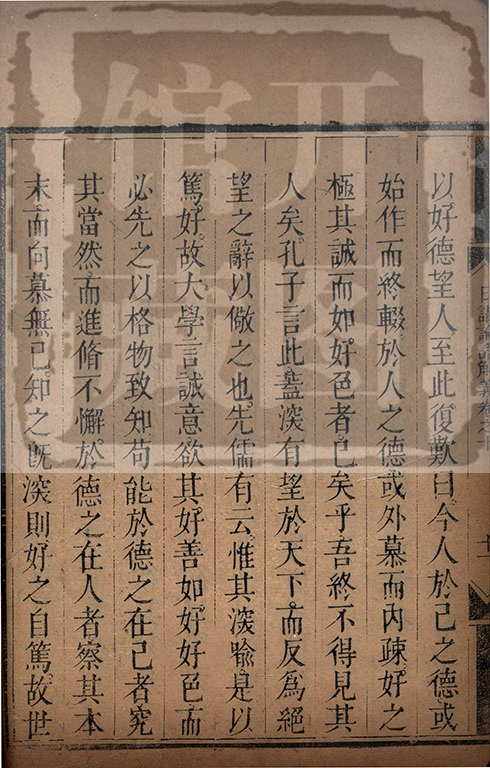 以好德望人至此復歎曰今人於己之德或
始作而終輟於人之德或外慕而内疎好之
極其誠而如好色者已矣乎吾終不得見其
人矣孔子言此蓋深有望於天下而反爲絕
望之辭以儆之也先儒有云惟其深喻是以
篤好故大學言誠意欲其好善如好好色而
必先之以格物致知苟能於德之在己者究
其當然而進脩不懈於德之在人者察其本
末而向慕無已知之既深則好之自篤故世